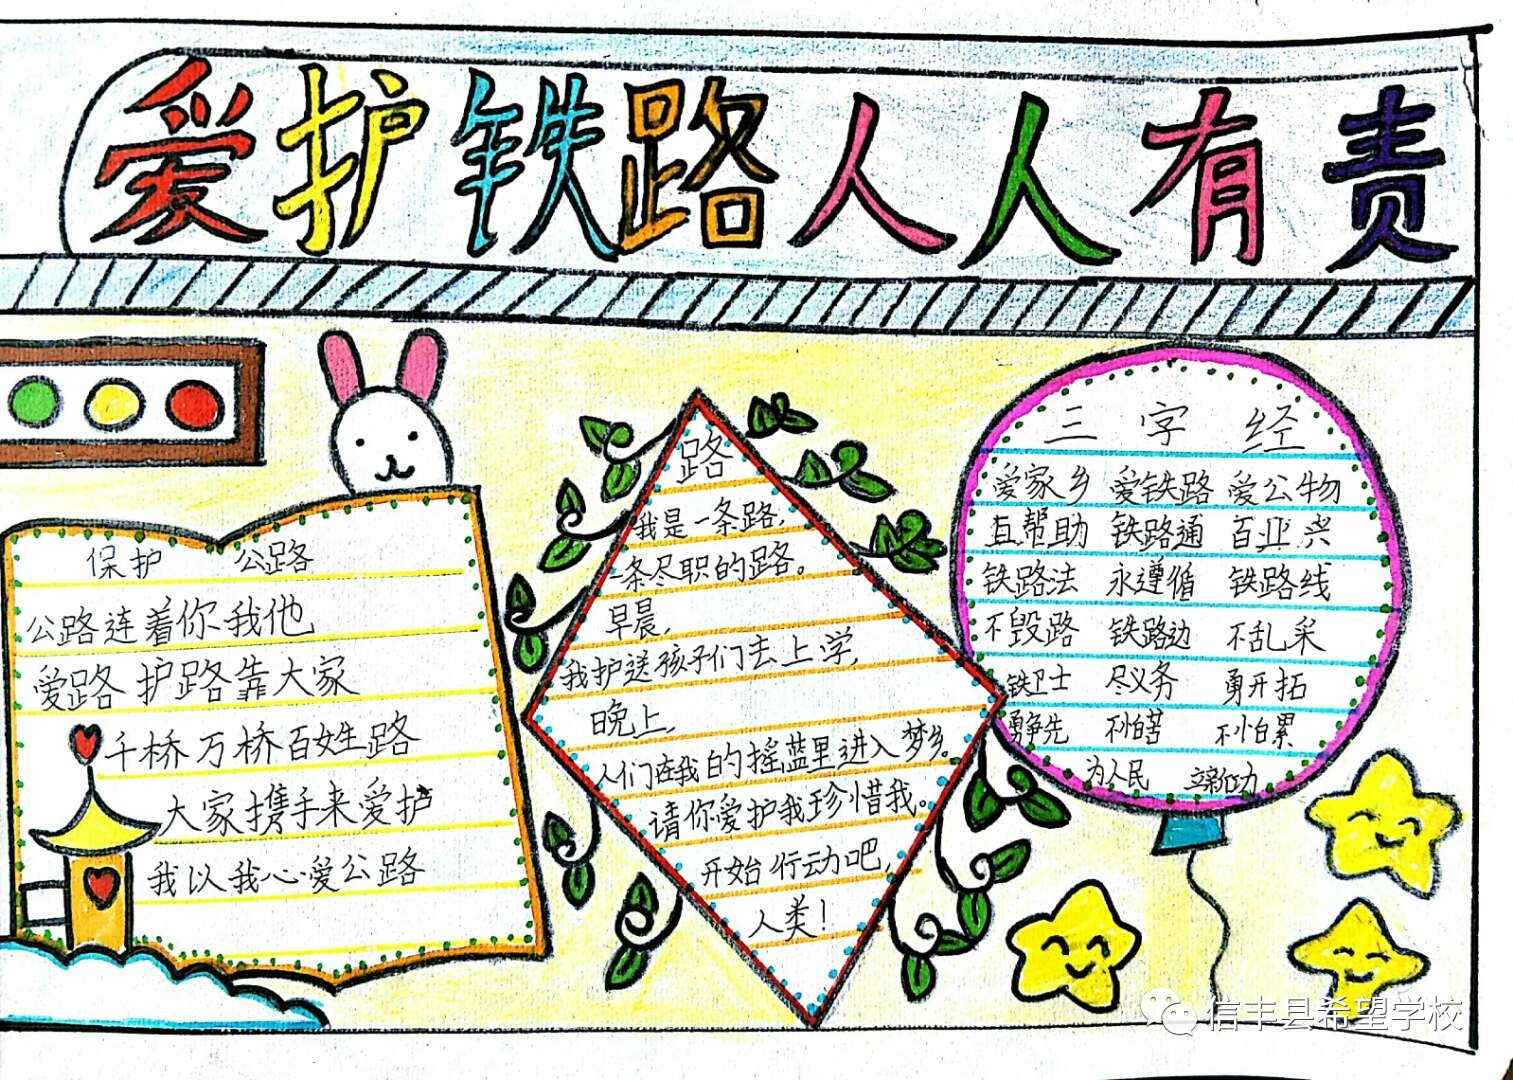 爱护铁路人人有责
保护 公路
公路连着你我他
爱路护路靠大家
千桥万桥百姓路
大家携手来爱护
我以我心爱公路
路
我是一条路,
一条尽职的路。
早晨,
我护送孩子们去上学,
晚上,
人们在我的摇蓝里进入梦乡。
请你爱护我珍惜我。
开始行动吧,
人类!
三 字 经
爱家乡 爱铁路 爱公物
互帮助 铁路通 百业兴
铁路法 永遵循 铁路线
不毁路 铁路边 不乱采
铁卫士 尽义务 勇开拓
勇争先 不怕苦 不怕累
为人民 立新功
信丰县希望学校